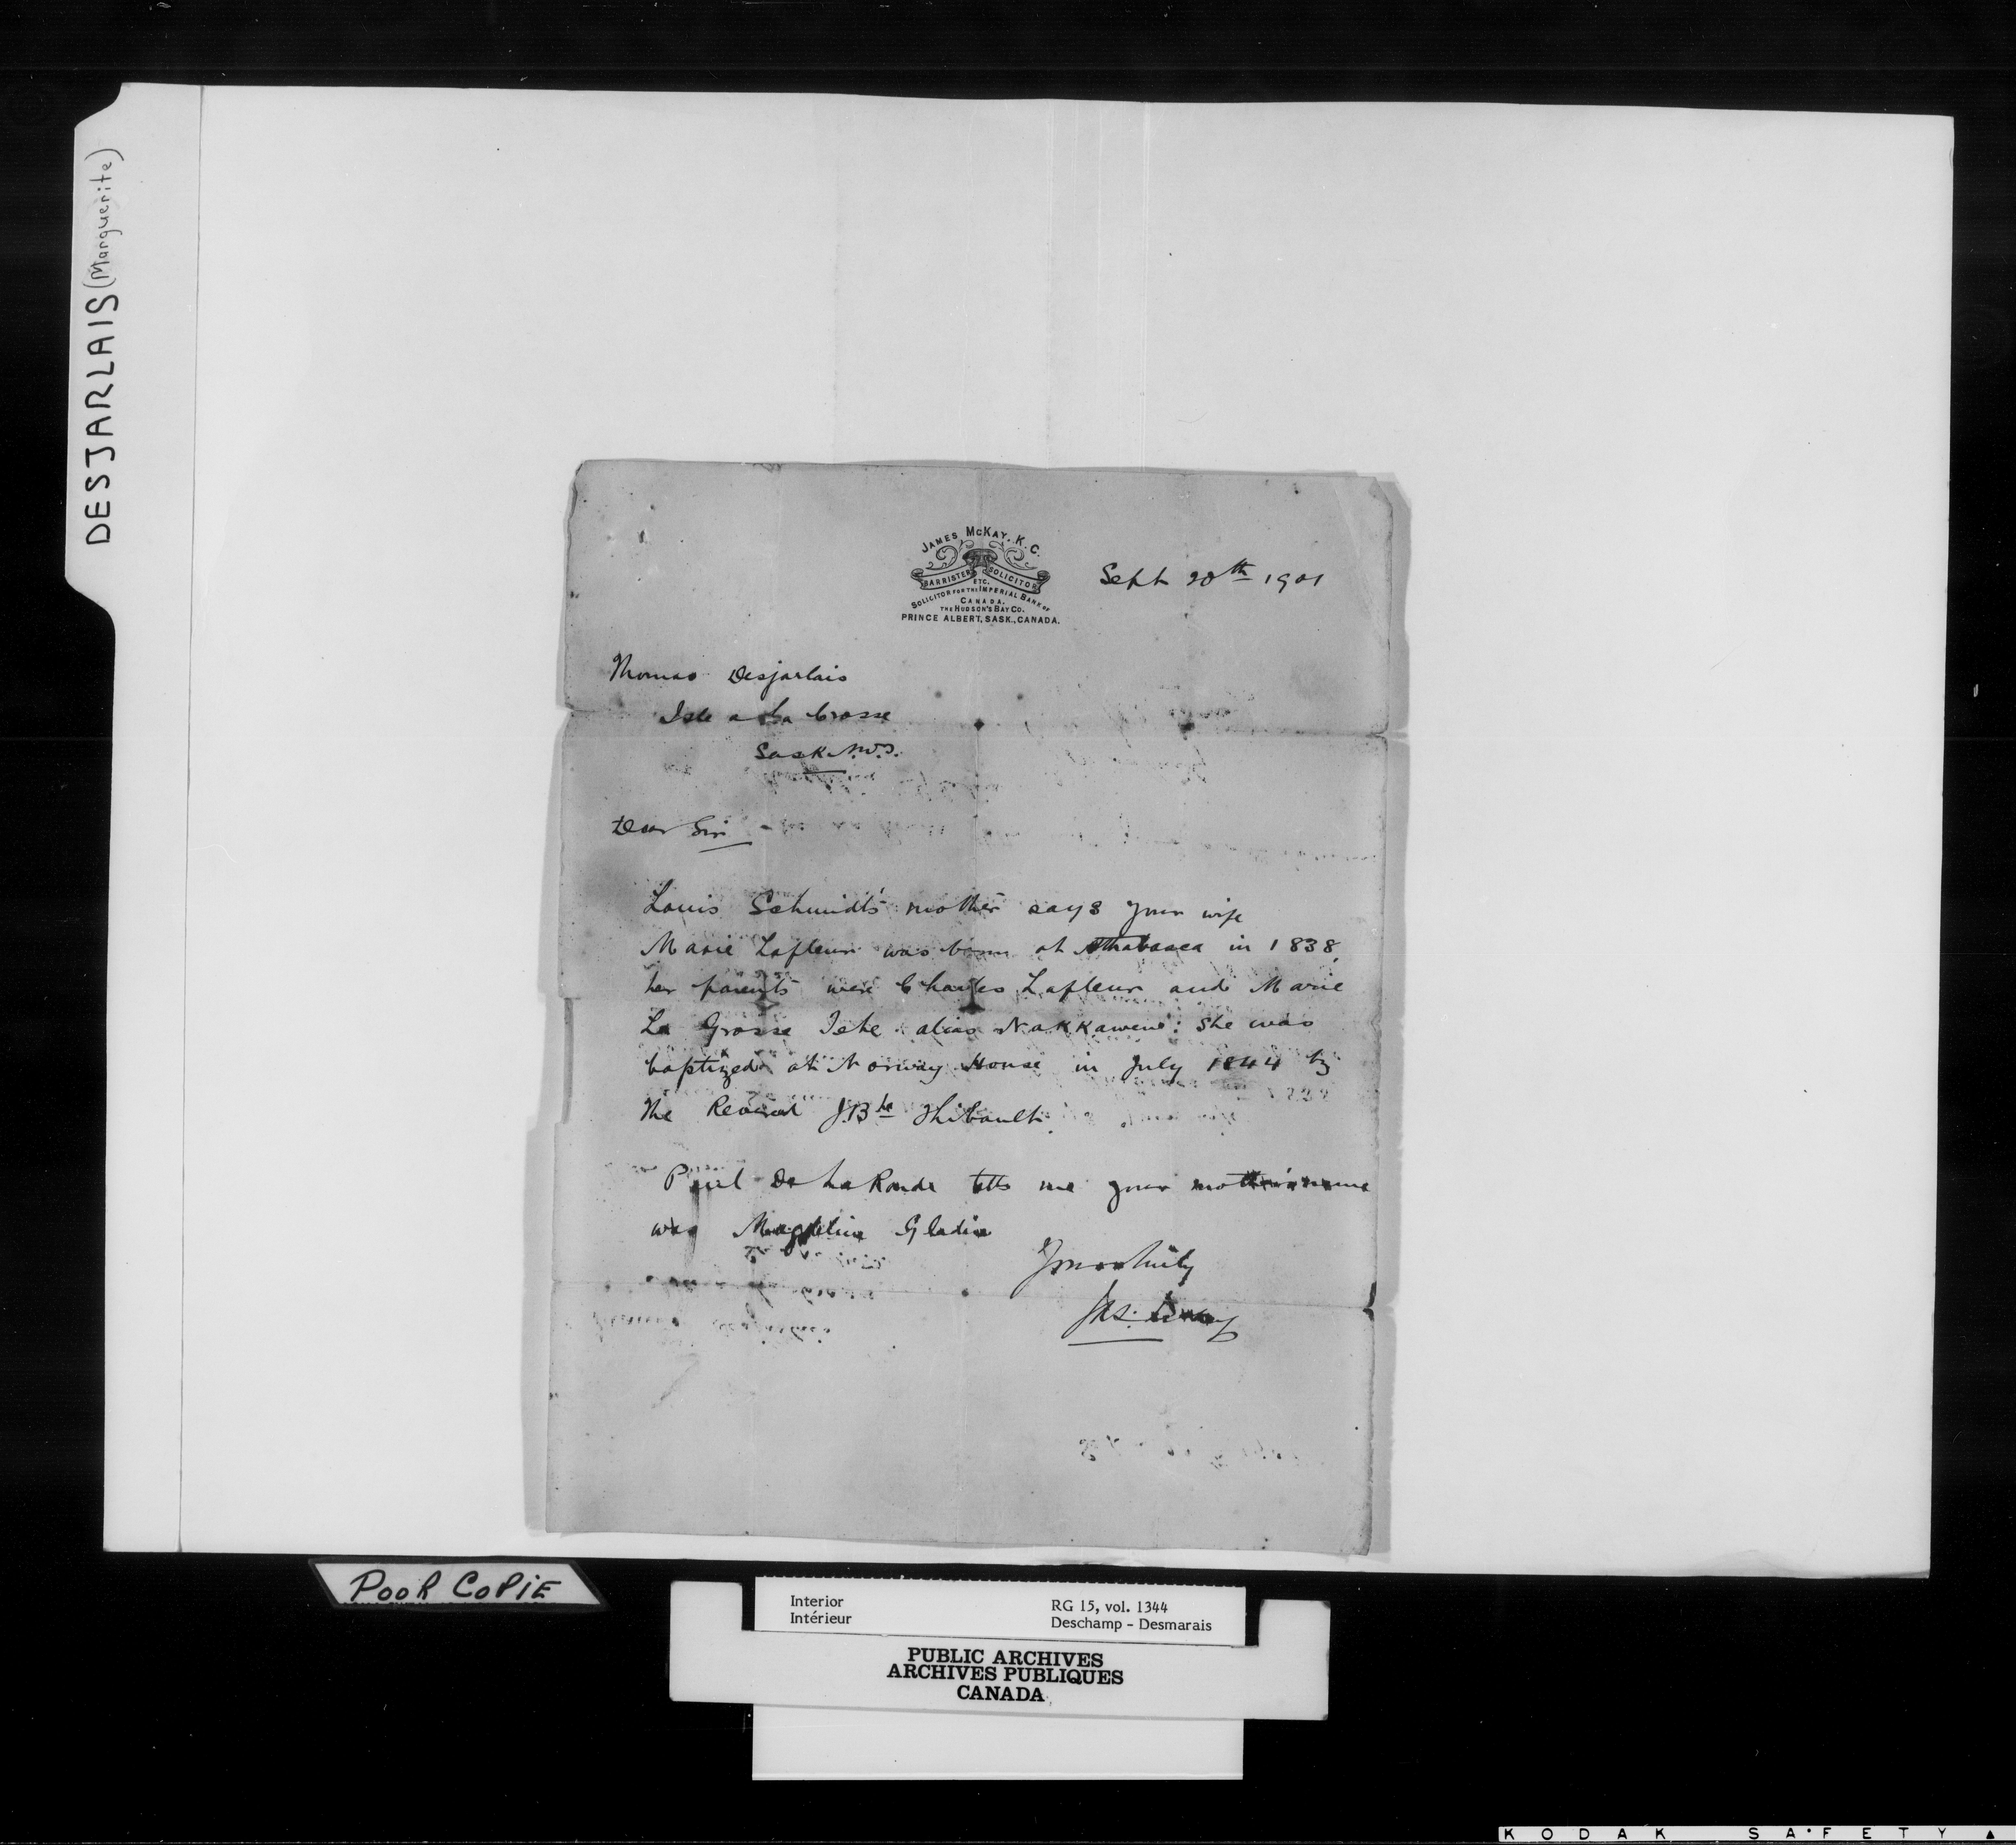 DESJARLAIS (Marguerite)
JAMES McKAY, K.C.
BARRISTER SOLICITOR
ETC.
SOLICITOR FOR THE IMPERIAL BANK OF
CANADA.
THE HUDSON'S BAY CO.
PRINCE ALBERT, SASK., CANADA.
Sept 20th 1901
Thomas Desjarlais
Isle a La Crosse
Sask N.W.T.
Dear Sir
Louis Schmidt's mother says your wife
Marie Lafleur was born at Athabasca in 1838,
her parents were Charles Lafleur and Marie
La Grosse Tete alias Nakkawene: She was
baptized at Norway House in July 1844 by
the Revered J.Bte Thibault.
Paul De La Ronde tells me your mother's name
was Magdeline Gladie
Yours truly
Jas.
POOR COPIE
Interior
Intérieur
RG 15, vol. 1344
Deschamp - Desmarais
PUBLIC ARCHIVES
ARCHIVES PUBLIQUES
CANADA
KODAK SAFETY